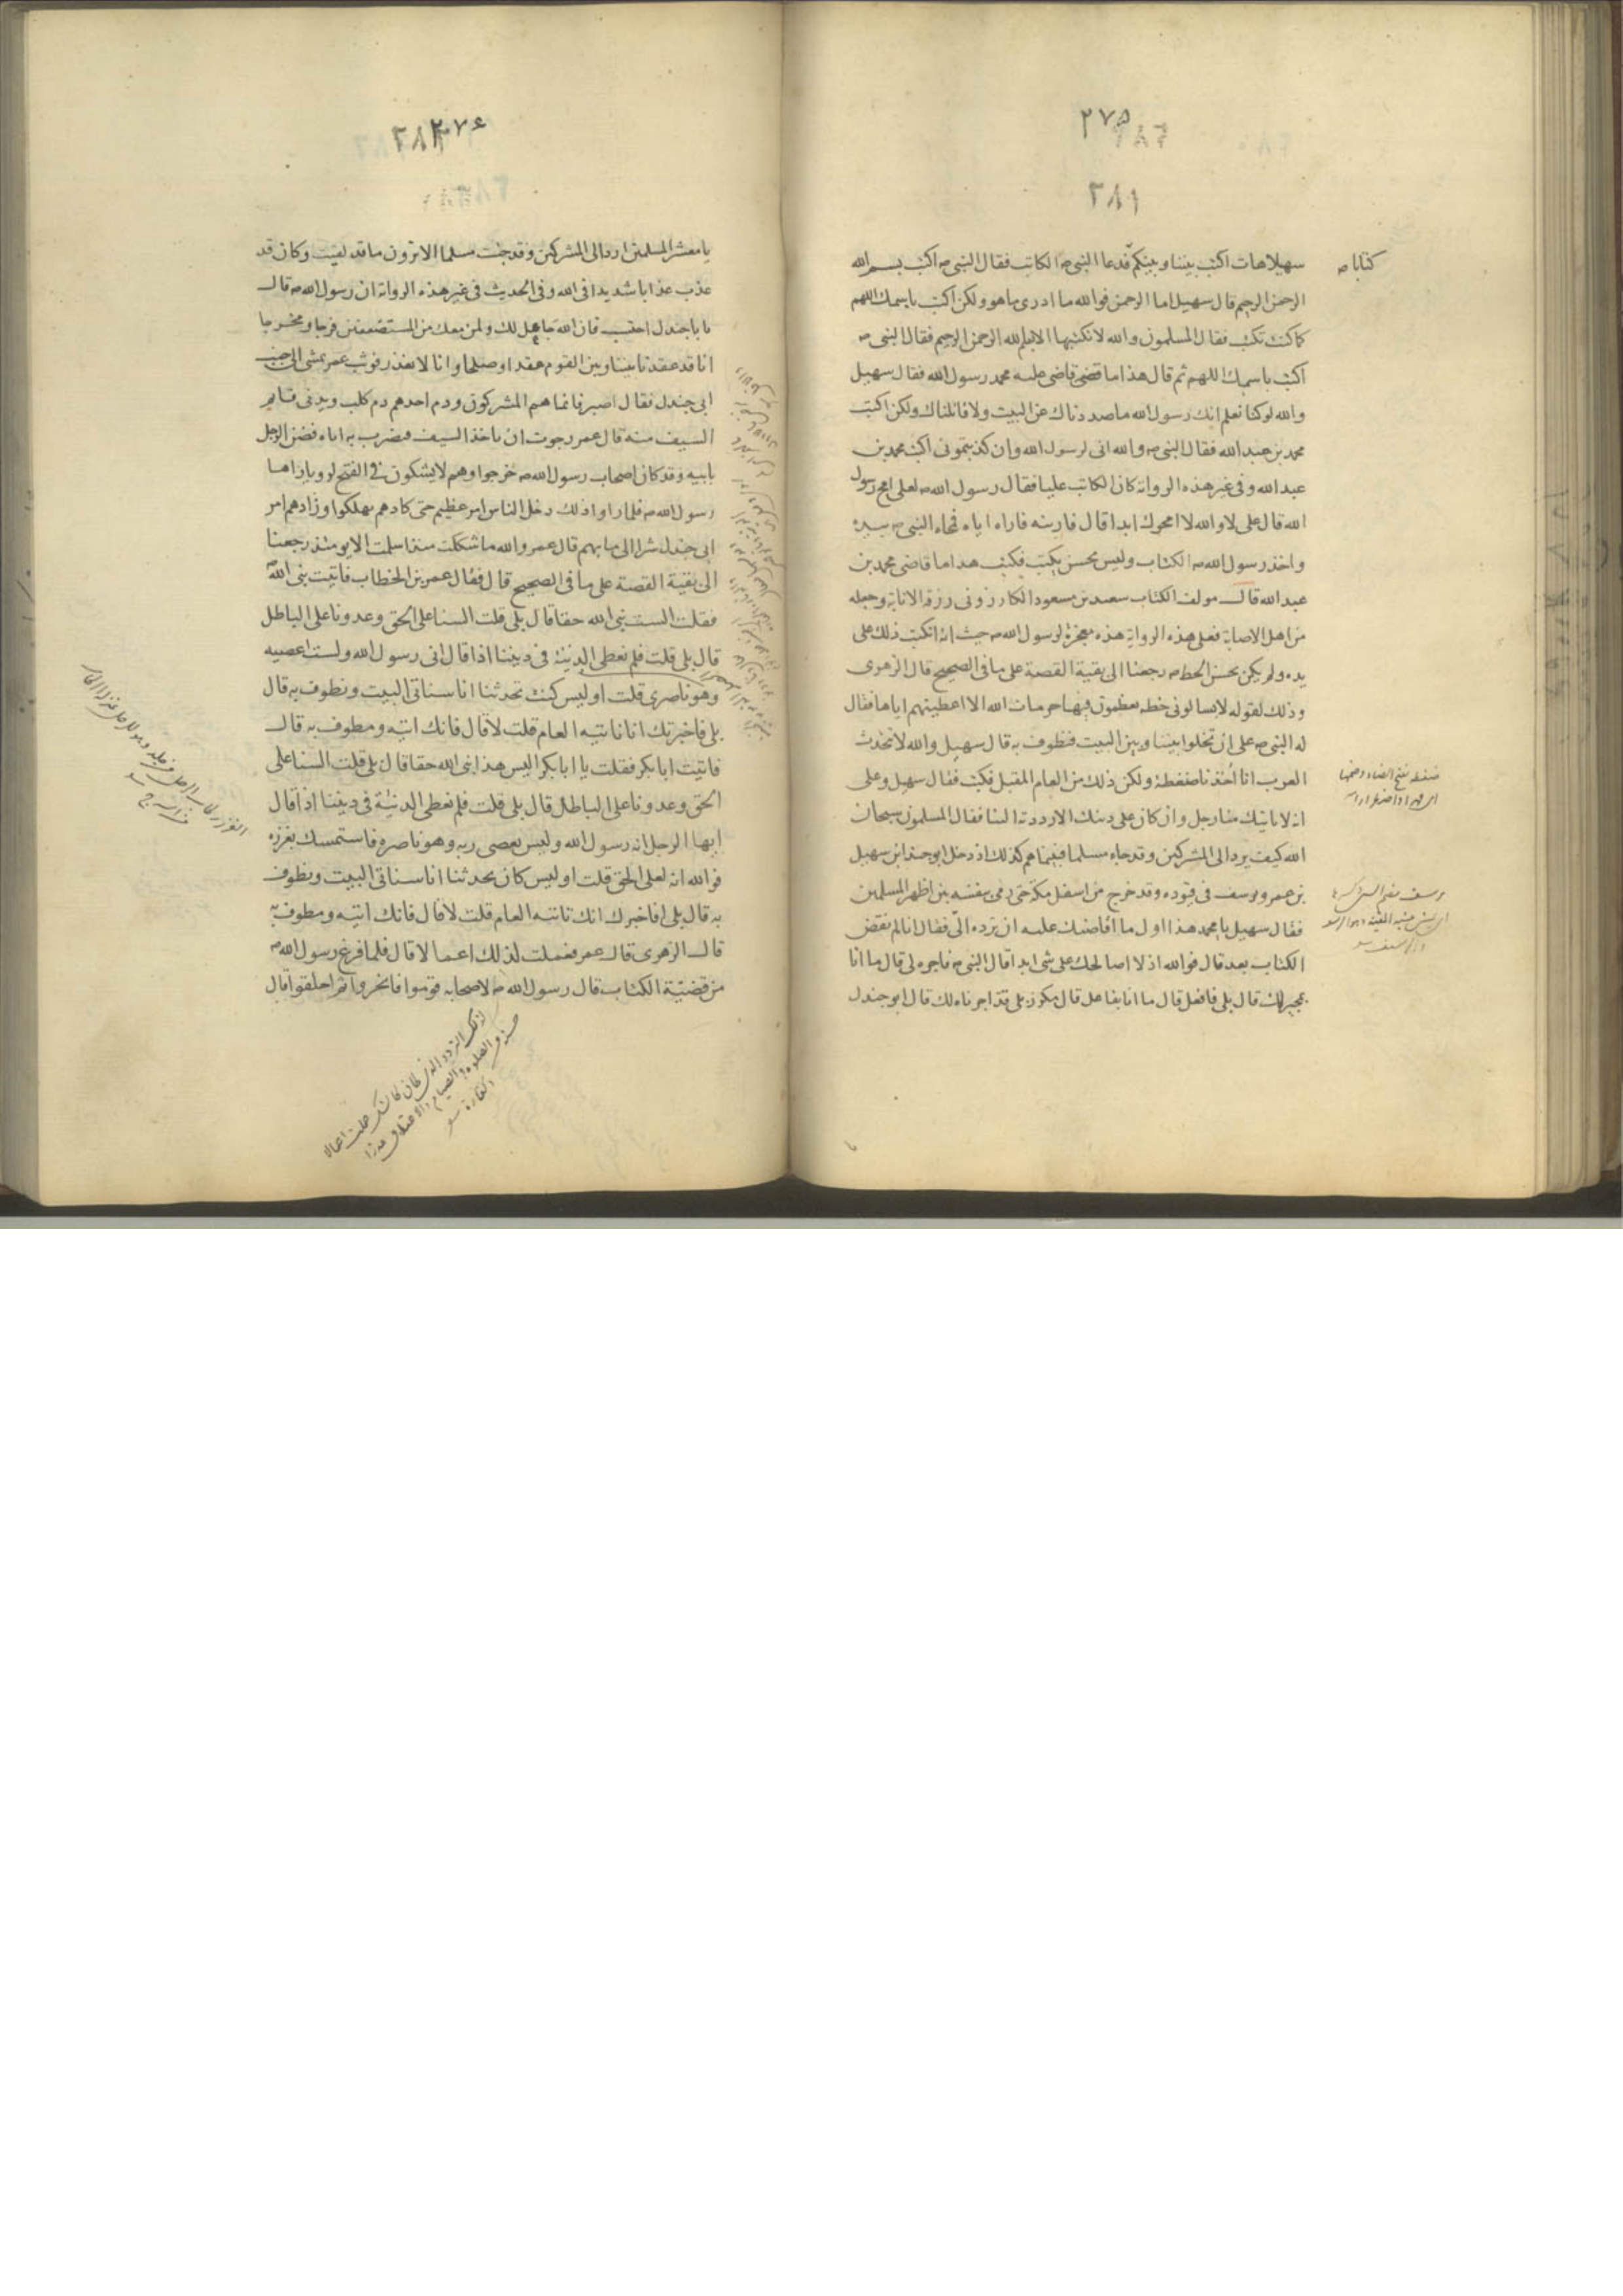 ٢٧٥
٢٨١
سهيلا هات اكتب بيننا وبينكم فدعا النبي ص الكاتب فقال النبي ص اكتب بسم الله
الرحمن الرحيم قال سهيل اما الرحمن فوالله ما ادرى ما هو ولكن اكتب باسمك اللهم
كما كنت تكتب فقال المسلمون والله لا نكتبها الا بسم الله الرحمن الرحيم فقال النبي ص
اكتب باسمك اللهم ثم قال هذا ما قضى قاضى عليه محمد رسول الله فقال سهيل
والله لو كنا نعلم انك رسول الله ما صددناك عن البيت ولا قاتلناك ولكن اكتب
محمد بن عبد الله فقال النبي ص والله انى لرسول الله وان كذبتمونى اكتب محمد بن
عبد الله وفى غير هذه الرواية كان الكاتب عليا فقال رسول الله ص لعلى امح رسول
الله قال على لا والله لا امحوك ابدا قال فارينه فاراه اياه فمحاه النبي ص بيده
واخذ رسول الله ص الكتاب وليس يحسن يكتب فكتب هذا ما قاضى محمد بن
عبد الله قال مولف الكتاب سعيد بن مسعود الكازرونى رزقه الانابة وجعله
من اهل الاصابة فعلى هذه الرواية هذه معجزة لرسول الله ص حيث انه انكتب ذلك على
يده ولم يكن يحسن الخط ص رجعنا الى بقية القصة على ما فى الصحيح قال الزهرى
وذلك لقوله لا يسالونى خطة يعظمون فيها حرمات الله الا اعطيتهم اياها فقال
له النبي ص على ان تخلوا بيننا وبين البيت فنطوف به قال سهيل والله لا تتحدث
العرب انا اخذنا ضغطة ولكن ذلك من العام المقبل فكتب فقال سهيل وعلى
انه لا ياتيك منا رجل وان كان على دينك الا رددته الينا فقال المسلمون سبحان
الله كيف يرد الى المشركين وقد جاء مسلما فبينما هم كذلك اذ دخل ابو جندل بن سهيل
بن عمرو يرسف فى قيوده وقد خرج من اسفل مكة حتى رمى بنفسه بين اظهر المسلمين
فقال سهيل يا محمد هذا اول ما اقاضيك عليه ان ترده الى فقال انا لم نقض
الكتاب بعد قال فوالله اذ لا اصالحك على شى ابدا قال النبي ص فاجره لى قال ما انا
بمجيره لك قال بلى فافعل قال ما انا بفاعل قال مكرز بلى قد اجرناه لك قال ابو جندل
كتابا ص
ضغطه بفتح الضاد وضمها
٢٧۶
يا معشر المسلمين ارد الى المشركين وقد جئت مسلما الا ترون ما قد لقيت وكان قد
عذب عذابا شديدا فى الله وفى الحديث فى غير هذه الرواية ان رسول الله ص قال
يا با جندل احتسب فان الله جاعل لك ولمن معك من المستضعفين فرجا ومخرجا
انا قد عقدنا بيننا وبين القوم عقدا وصلحا وانا لا نغدر فوثب عمر يمشى الى جنب
ابى جندل فقال اصبر فانما هم المشركون ودم احدهم دم كلب ويدنى قايم
السيف منه قال عمر رجوت ان ياخذ السيف فيضرب به اباه فضن الرجل
بابيه وقد كان اصحاب رسول الله ص خرجوا وهم لا يشكون فى الفتح لرويا راها
رسول الله ص فلما راوا ذلك دخل الناس امر عظيم حتى كادهم يهلكوا وزادهم امر
ابى جندل شرا الى ما بهم قال عمر والله ما شككت منذ اسلمت الا يومئذ رجعنا
الى بقية القصة على ما فى الصحيح قال فقال عمر بن الخطاب فاتيت نبى الله ص
فقلت الست نبى الله حقا قال بلى قلت السنا على الحق وعدونا على الباطل
قال بلى قلت فلم نعطى الدنية فى ديننا اذا قال انى رسول الله ولست اعصيه
وهو ناصرى قلت اوليس كنت تحدثنا انا سناتى البيت ونطوف به قال
بلى فاخبرتك انا ناتيه العام قلت لا قال فانك اتيه ومطوف به قال
فاتيت ابا بكر فقلت يا ابا بكر اليس هذا نبى الله حقا قال بلى قلت السنا على
الحق وعدونا على الباطل قال بلى قلت فلم نعطى الدنية فى ديننا اذا قال
ايها الرجل انه رسول الله وليس يعصى ربه وهو ناصره فاستمسك بغرزه
فوالله انه لعلى الحق قلت اوليس كان يحدثنا انا سناتى البيت ونطوف
به قال بلى افاخبرك انك تاتيه العام قلت لا قال فانك اتيه ومطوف به
قال الزهرى قال عمر فعملت لذلك اعمالا قال فلما فرغ رسول الله ص
من قضية الكتاب قال رسول الله ص لاصحابه قوموا فانحروا ثم احلقوا قال